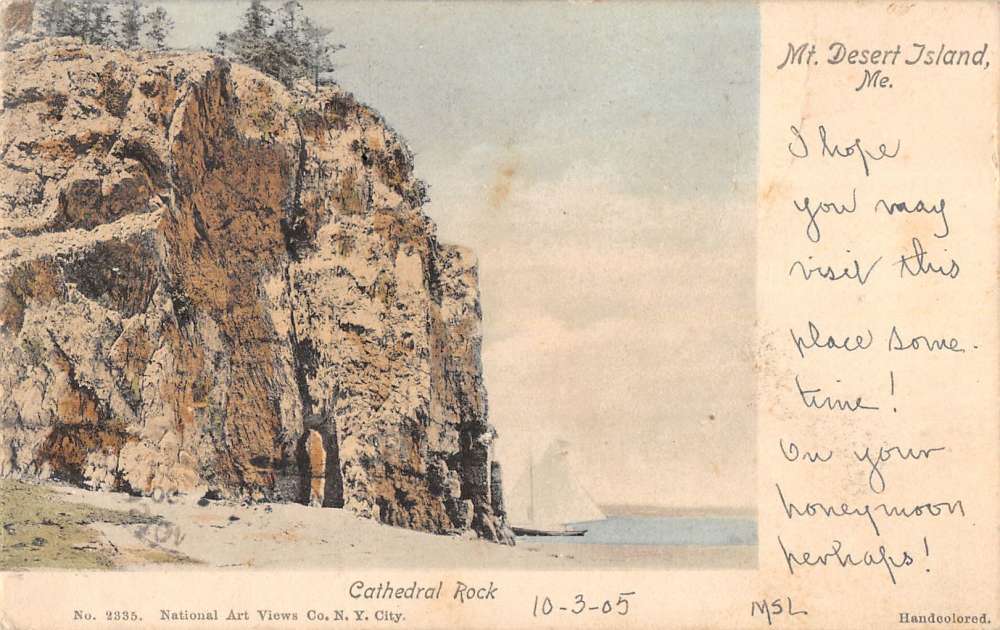 Mt. Desert Island,
Me.
I hope
you may
visit this
place some-
time!
On your
honeymoon
perhaps!
Cathedral Rock
No. 2335. National Art Views Co. N. Y. City.
10-3-05
MSL
Handcolored.